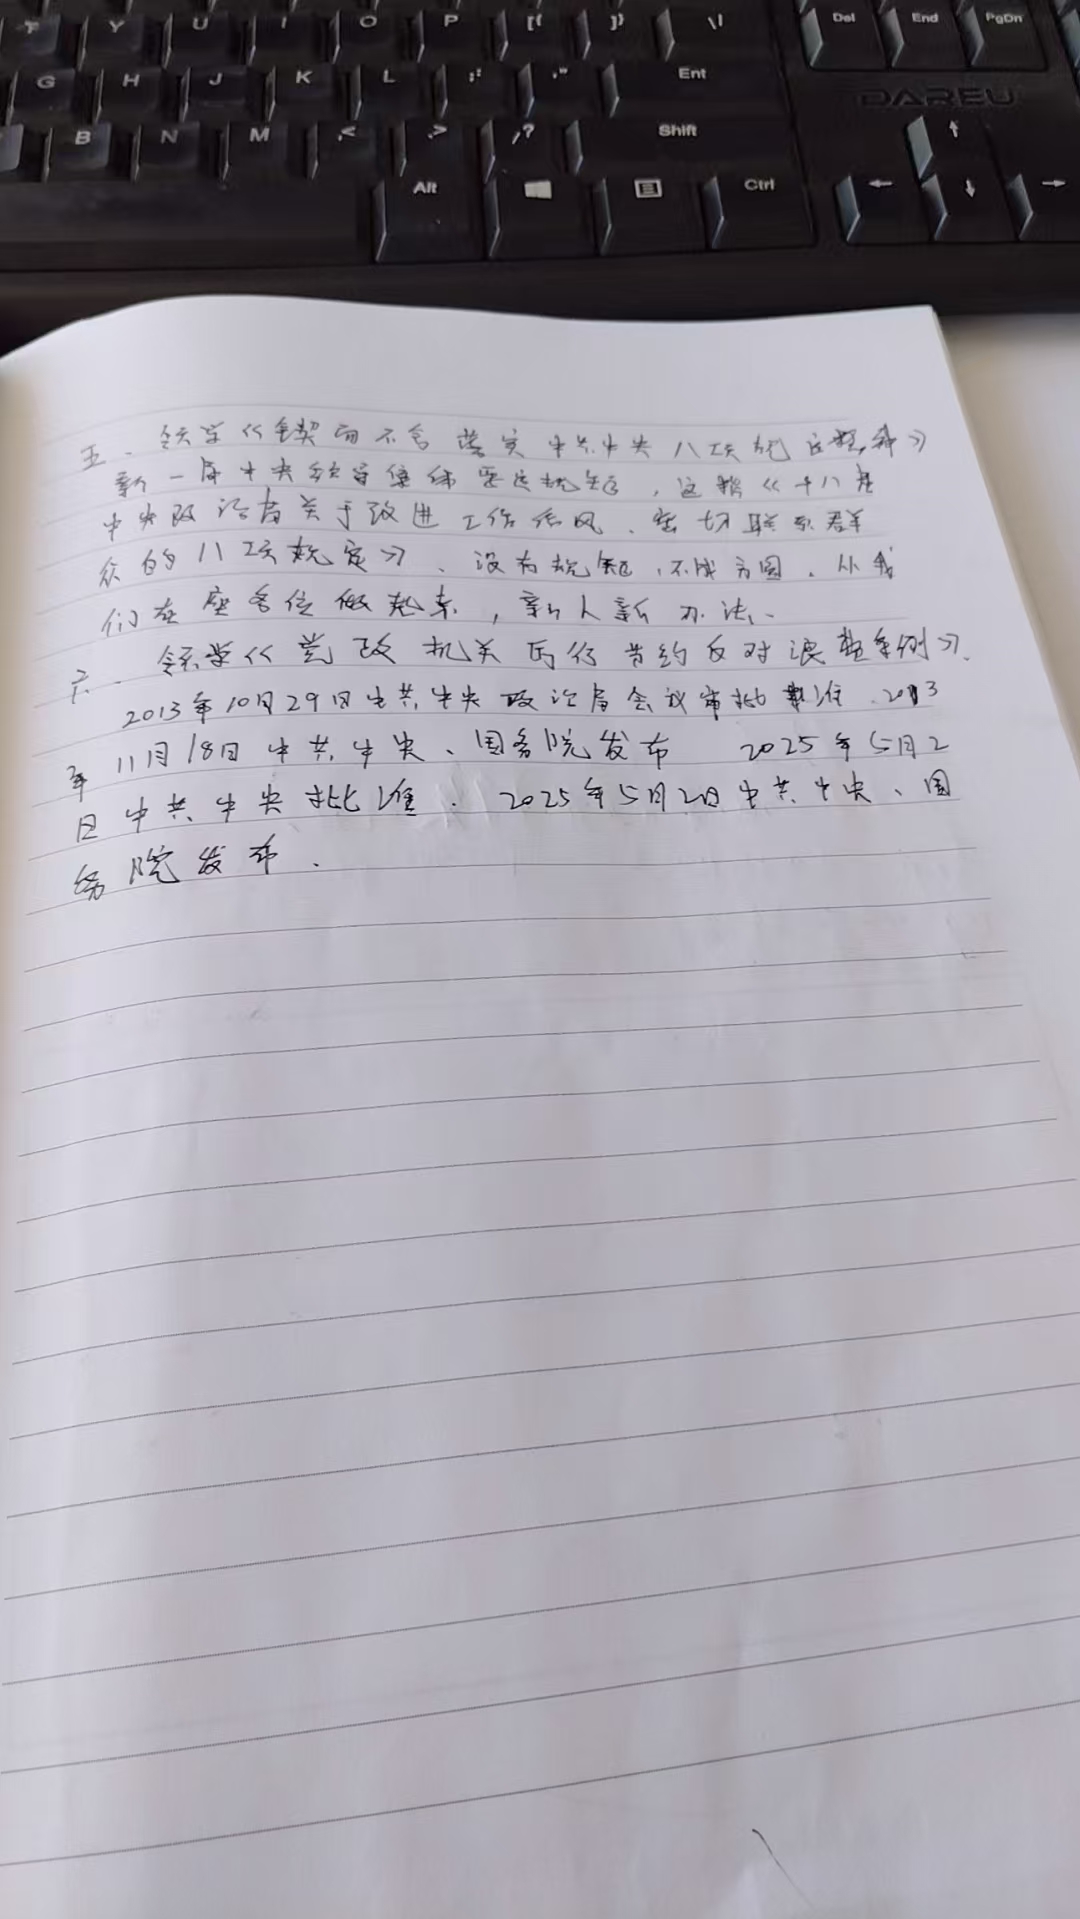 T Y U I O P [{ ]} \| Del End PgDn
G H J K L ;: '" Ent DAREU
B N M ,< .> /? Shift ↑
Alt Ctrl ← ↓ →
五、领学《锲而不舍落实中共中央八项规定精神》
新一届中央领导集体要立规矩,这招《十八届
中央政治局关于改进工作作风、密切联系群
众的八项规定》、没有规矩,不成方圆、从我
们在座各位做起来,新人新办法、
六、领学《党政机关厉行节约反对浪费条例》.
2013年10月29日中共中央政治局会议审批批准、2013
年11月18日中共中央、国务院发布 2025年5月2
日中共中央批准、2025年5月2日中共中央、国
务院发布.